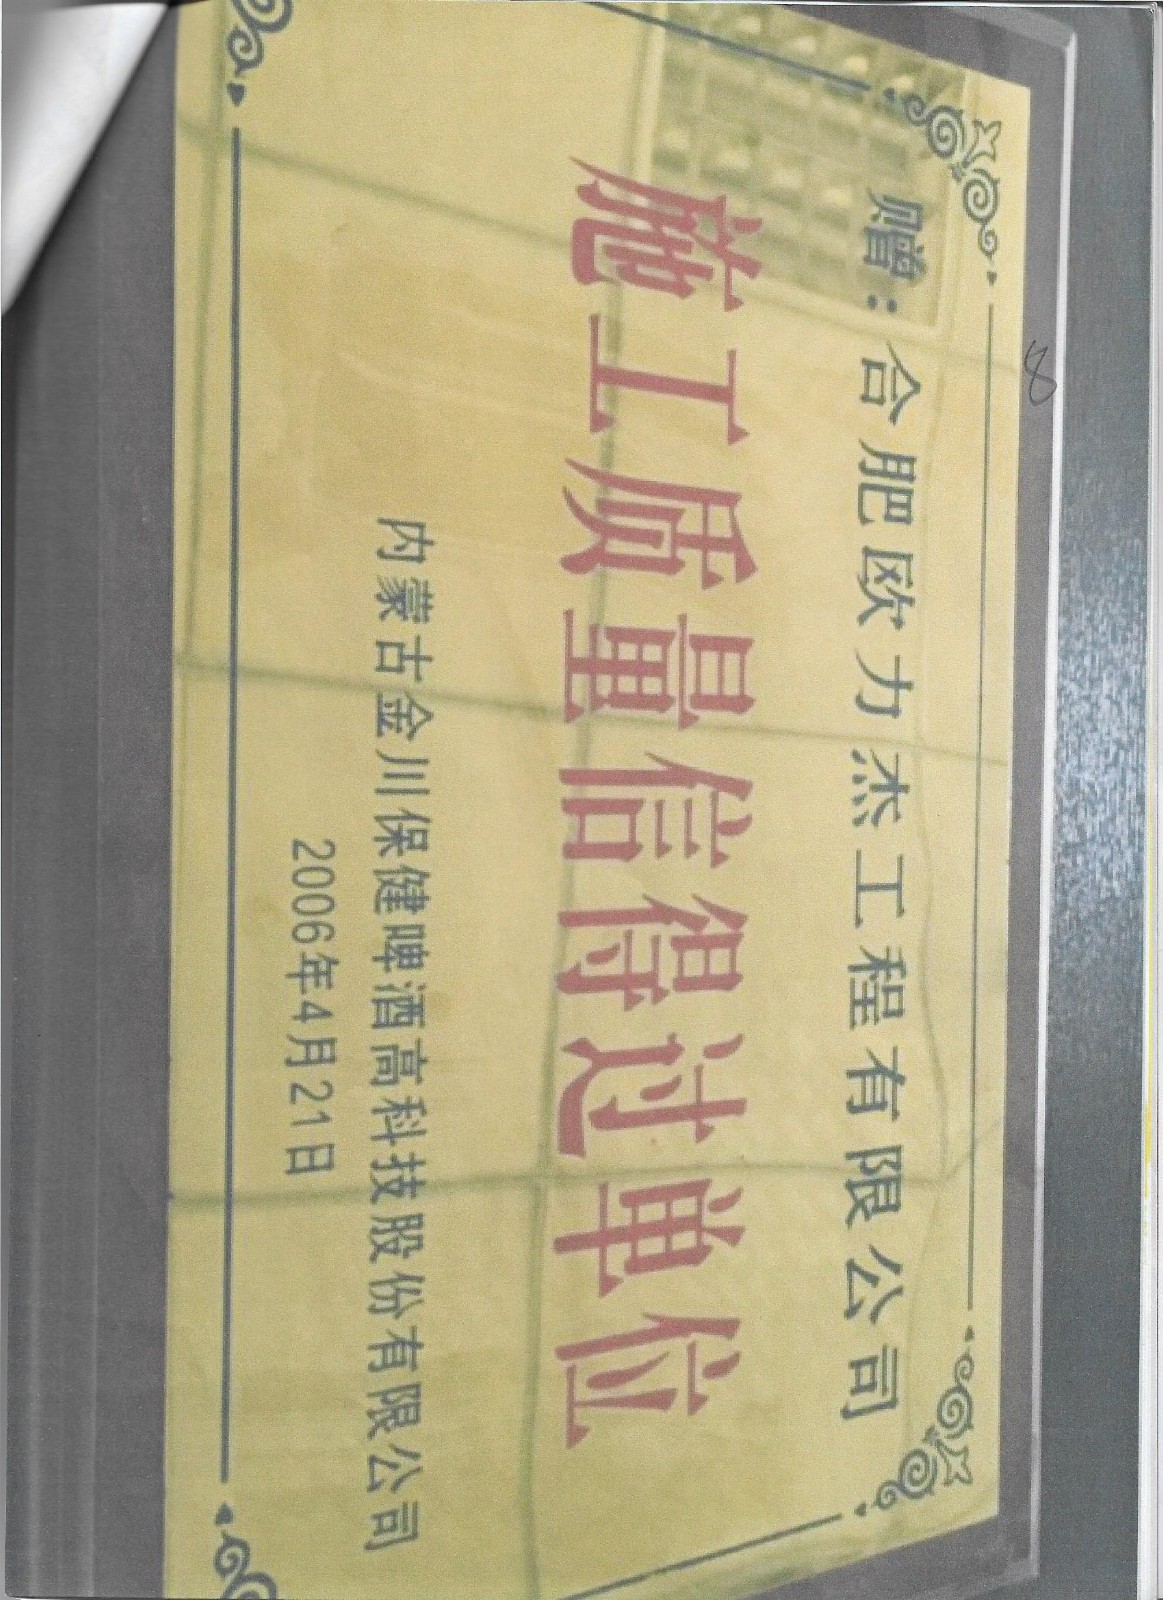 赠：合肥欧力杰工程有限公司
施工质量信得过单位
内蒙古金川保健啤酒高科技股份有限公司
2006年4月21日